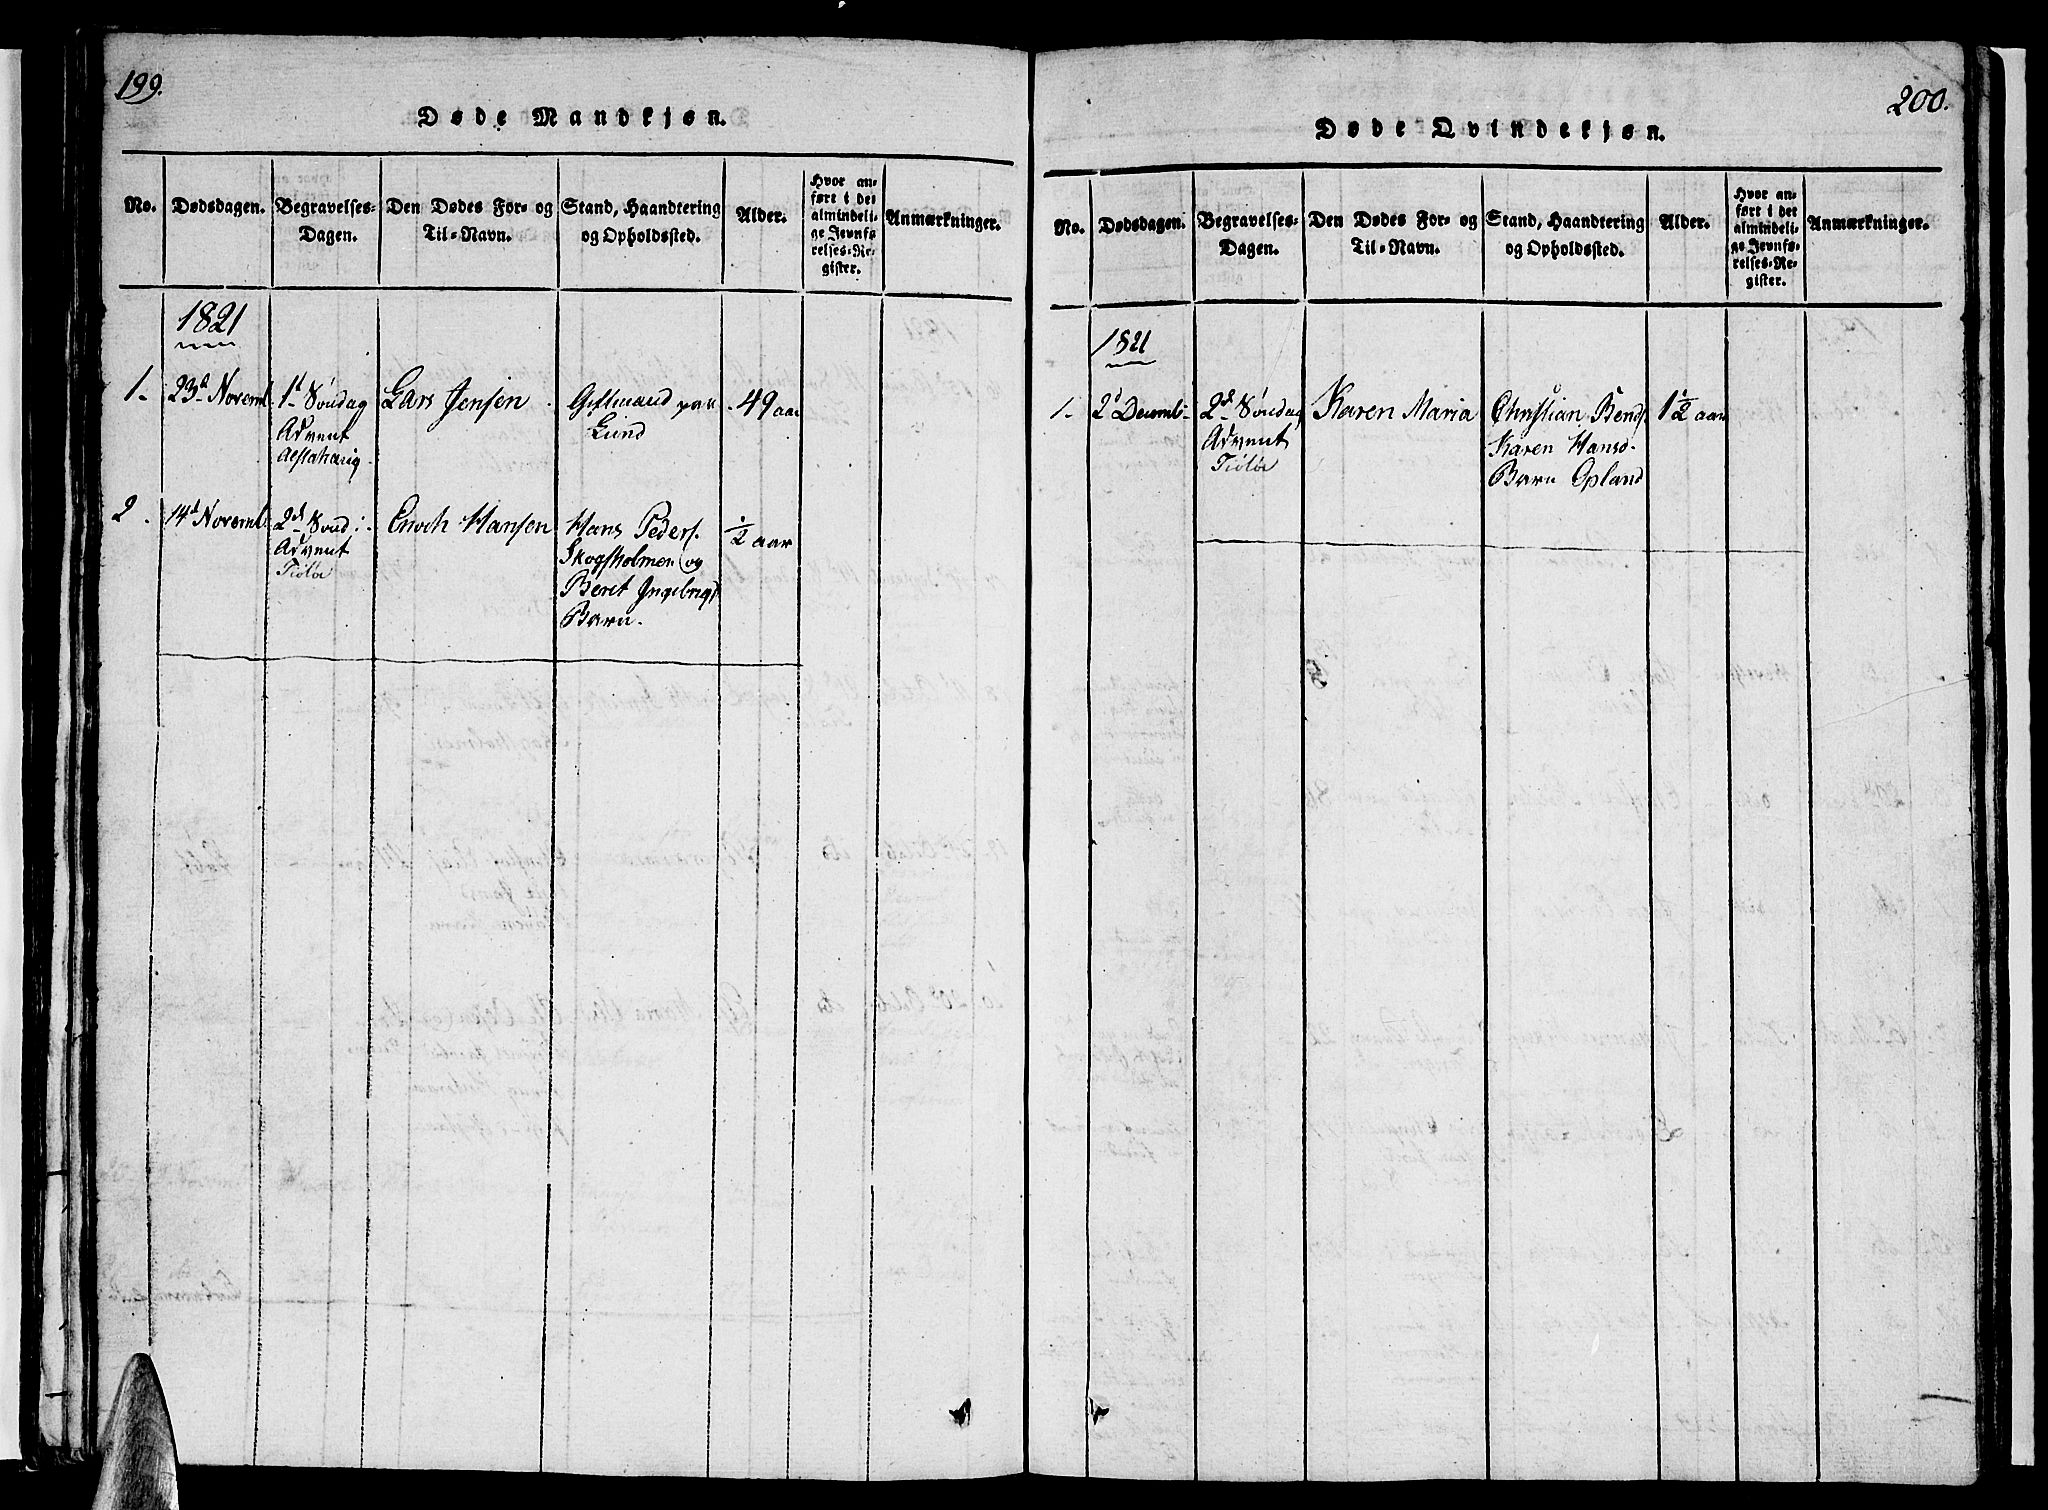 199.
Døde Mandkjøn.
No.
Dødsdagen.
Begravelses-
Dagen.
Den Dødes For- og
Til-Navn.
Stand, Haandtering
og Opholdssted.
Alder.
Hvor an-
ført i det
almindeli-
ge Jevnfø-
relses-Re-
gister.
Anmærkninger.
1821
1-
23d Novemb
1t Søndag
Advent
Alstahoug
Lars Jensen
Giftmand paa
Lund
49 aar
2.
14d Novemb
2d Sønd:
Advent
Tiøtøe
Enoch Hansen
Hans Peders.
Skogsholmen og
Beret Ingebrigts
Barn.
1/2 aar
200.
Døde Qvindekjøn.
No.
Dødsdagen.
Begravelses-
Dagen.
Den Dødes For- og
Til-Navn.
Stand, Haandtering
og Opholdssted.
Alder.
Hvor an-
ført i det
almindeli-
ge Jevnfø-
relses-Re-
gister.
Anmærkninger.
1821
1-
2d Decemb-
2d Søndag
Advent
Tiøtøe
Karen Maria
Christian Bends.
Karen Hansd.
Barn Opland
1 1/2 aar